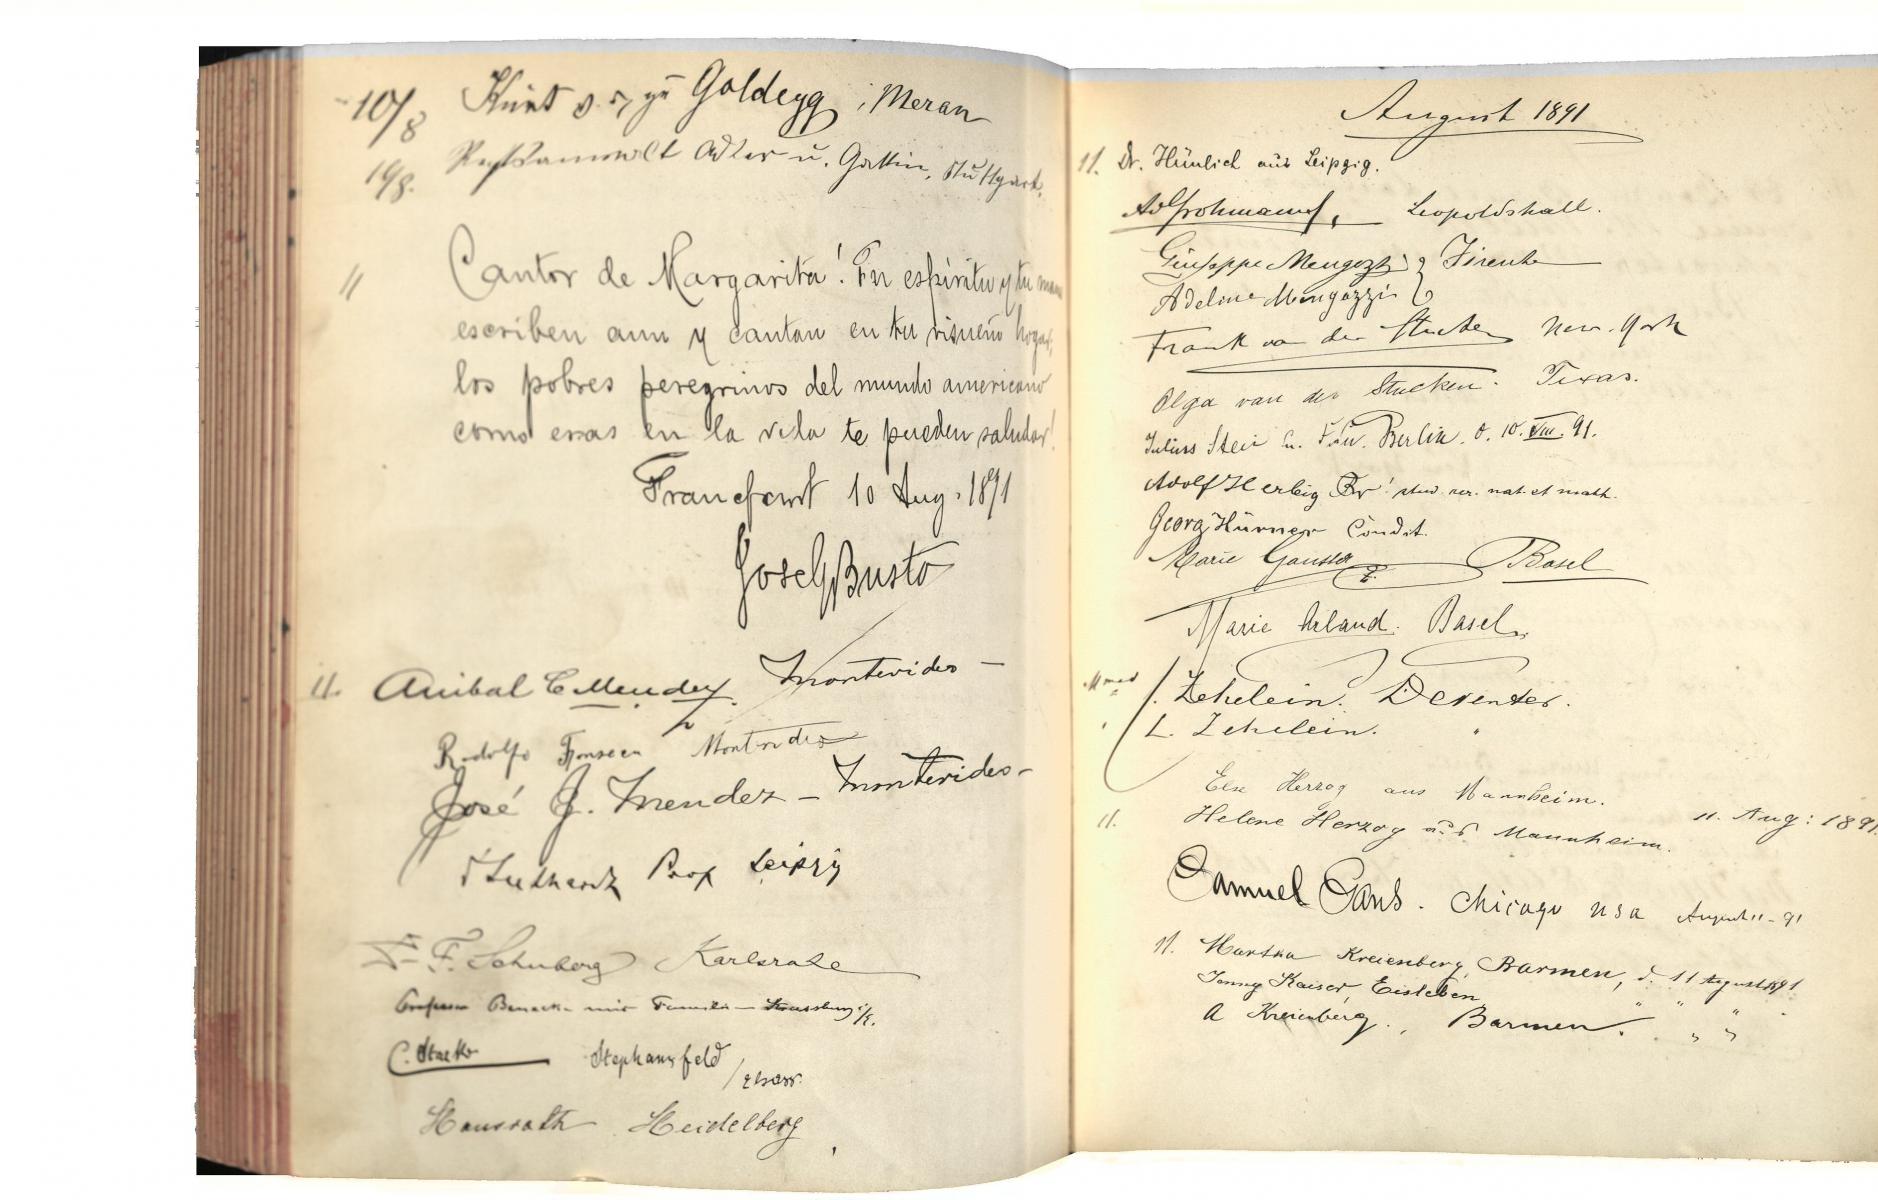 10/8 Kurt v. u. zu Goldegg, Meran
10/8. Rechtsanwalt Adler u. Gattin, Stuttgart.
" Cantor de Margarita! Tu espíritu y tu
escriben aun y cantan en tu risueño hogar,
los pobres peregrinos del mundo americano
como eras en la vida te pueden saludar!
Francfourt 10 Aug. 1891
José G Busto
11. Anibal C Mendez. Montevideo —
Rodolfo Fonseca Montevideo
José J. Mendez — Montevideo —
Luthardt Prof Leipzig
F. Schuberg Karlsruhe
Professor Benecke mit Familie — Strassburg i/E.
C. Stephansfeld
/Elsass.
Hausrath Heidelberg
August 1891
11. Dr. Hümlich aus Leipzig.
Ad Frohmann, Leopoldshall.
Giuseppe Mengozzi } Firenze
Adelina Mengozzi
Frank van der Stucken New-York
Olga van der Stucken. Texas.
Julius Stein u. Frau. Berlin. d. 10. VIII. 91.
Adolf Herbig stud. rer. nat. et math.
Georg Hürner Condit.
Marie Basel
Marie Arland. Basel.
J. Zehelein. Deventer.
L. Zehelein. "
Else Herzog aus Mannheim.
11. Helene Herzog aus Mannheim. 11. Aug: 1891.
Samuel Gans. Chicago USA August 11-91
11. Martha Kreienberg, Barmen, d. 11 August 1891
Jenny Kaiser, Eisleben " " "
A Kreienberg., Barmen. " "